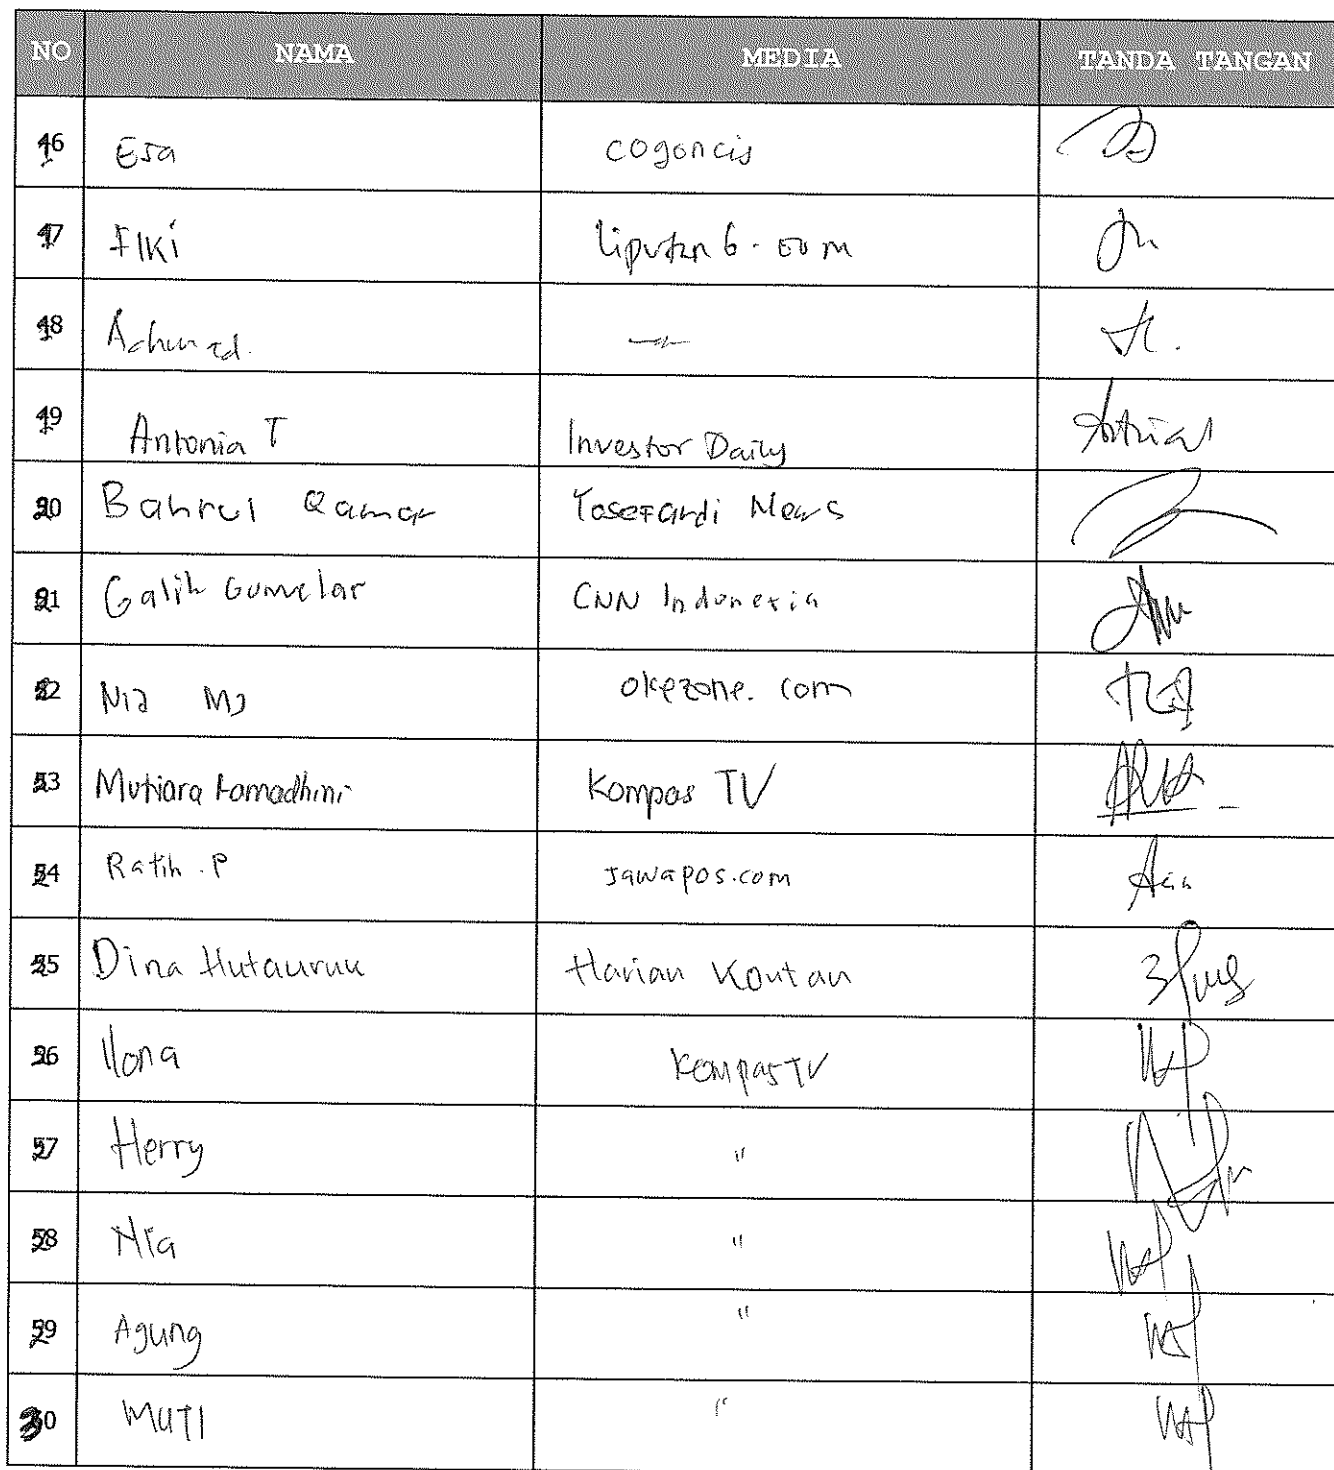 NO NAMA MEDIA TANDA TANGAN
16 Esa cogoncis
17 Fiki liputan6.com
18 Achmad. -"-
19 Antonia T Investor Daily
20 Bahrul Qamar Yosefardi News
21 Galih Gumelar CNN Indonesia
22 okezone.com
23 Mutiara Ramadhini Kompas TV
24 Ratih.P jawapos.com
25 Dina Hutauruk Harian Kontan
26 Ilona Kompas TV
27 Herry "
28 Nia "
29 Agung "
30 MUTI "